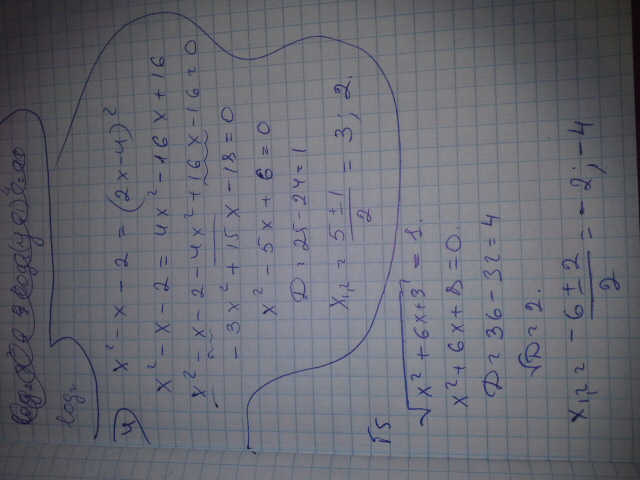 log₂
4) x² - x - 2 = (2x-4)²
x² - x - 2 = 4x² - 16x + 16
x² - x - 2 - 4x² + 16x - 16 = 0
-3x² + 15x - 18 = 0
x² - 5x + 6 = 0
D = 25 - 24 = 1
x₁,₂ = (5 ± 1)/2 = 3; 2.
√5
√(x² + 6x + 3) = 1.
x² + 6x + 8 = 0.
D = 36 - 32 = 4
√D = 2.
x₁,₂ = (-6 ± 2)/2 = -2; -4